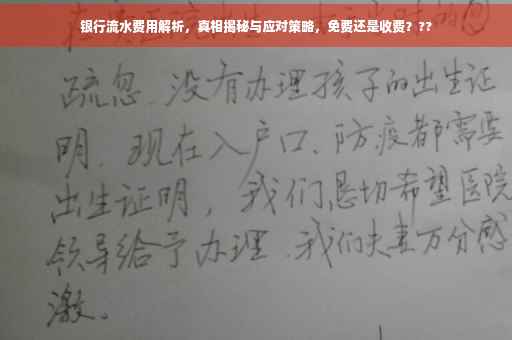 银行流水费用解析，真相揭秘与应对策略，免费还是收费？??
疏忽、没有办理孩子的出生证
明、现在入户口、防疫都需要
出生证明，我们恳切希望医院
领导给予办理、我们夫妻万分感
激。